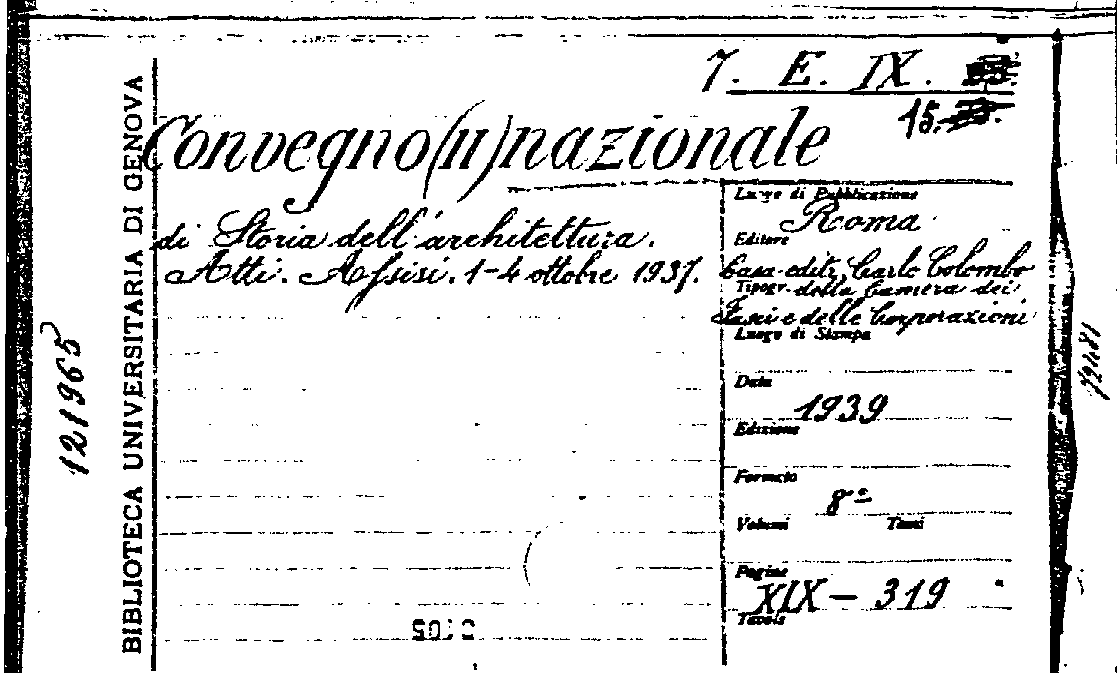 7. E. IX.
15.
Convegno (II) nazionale
di Storia dell'architettura.
Atti. Assisi. 1-4 ottobre 1937.
Luogo di Pubblicazione
Roma
Editore
Casa editr. Carlo Colombo
Tipogr. della Camera dei
Fasci e delle Corporazioni
Luogo di Stampa
Data
1939
Edizione
Formato
8°
Volumi Tomi
Pagine
XIX - 319
Tavole
BIBLIOTECA UNIVERSITARIA DI GENOVA
121965